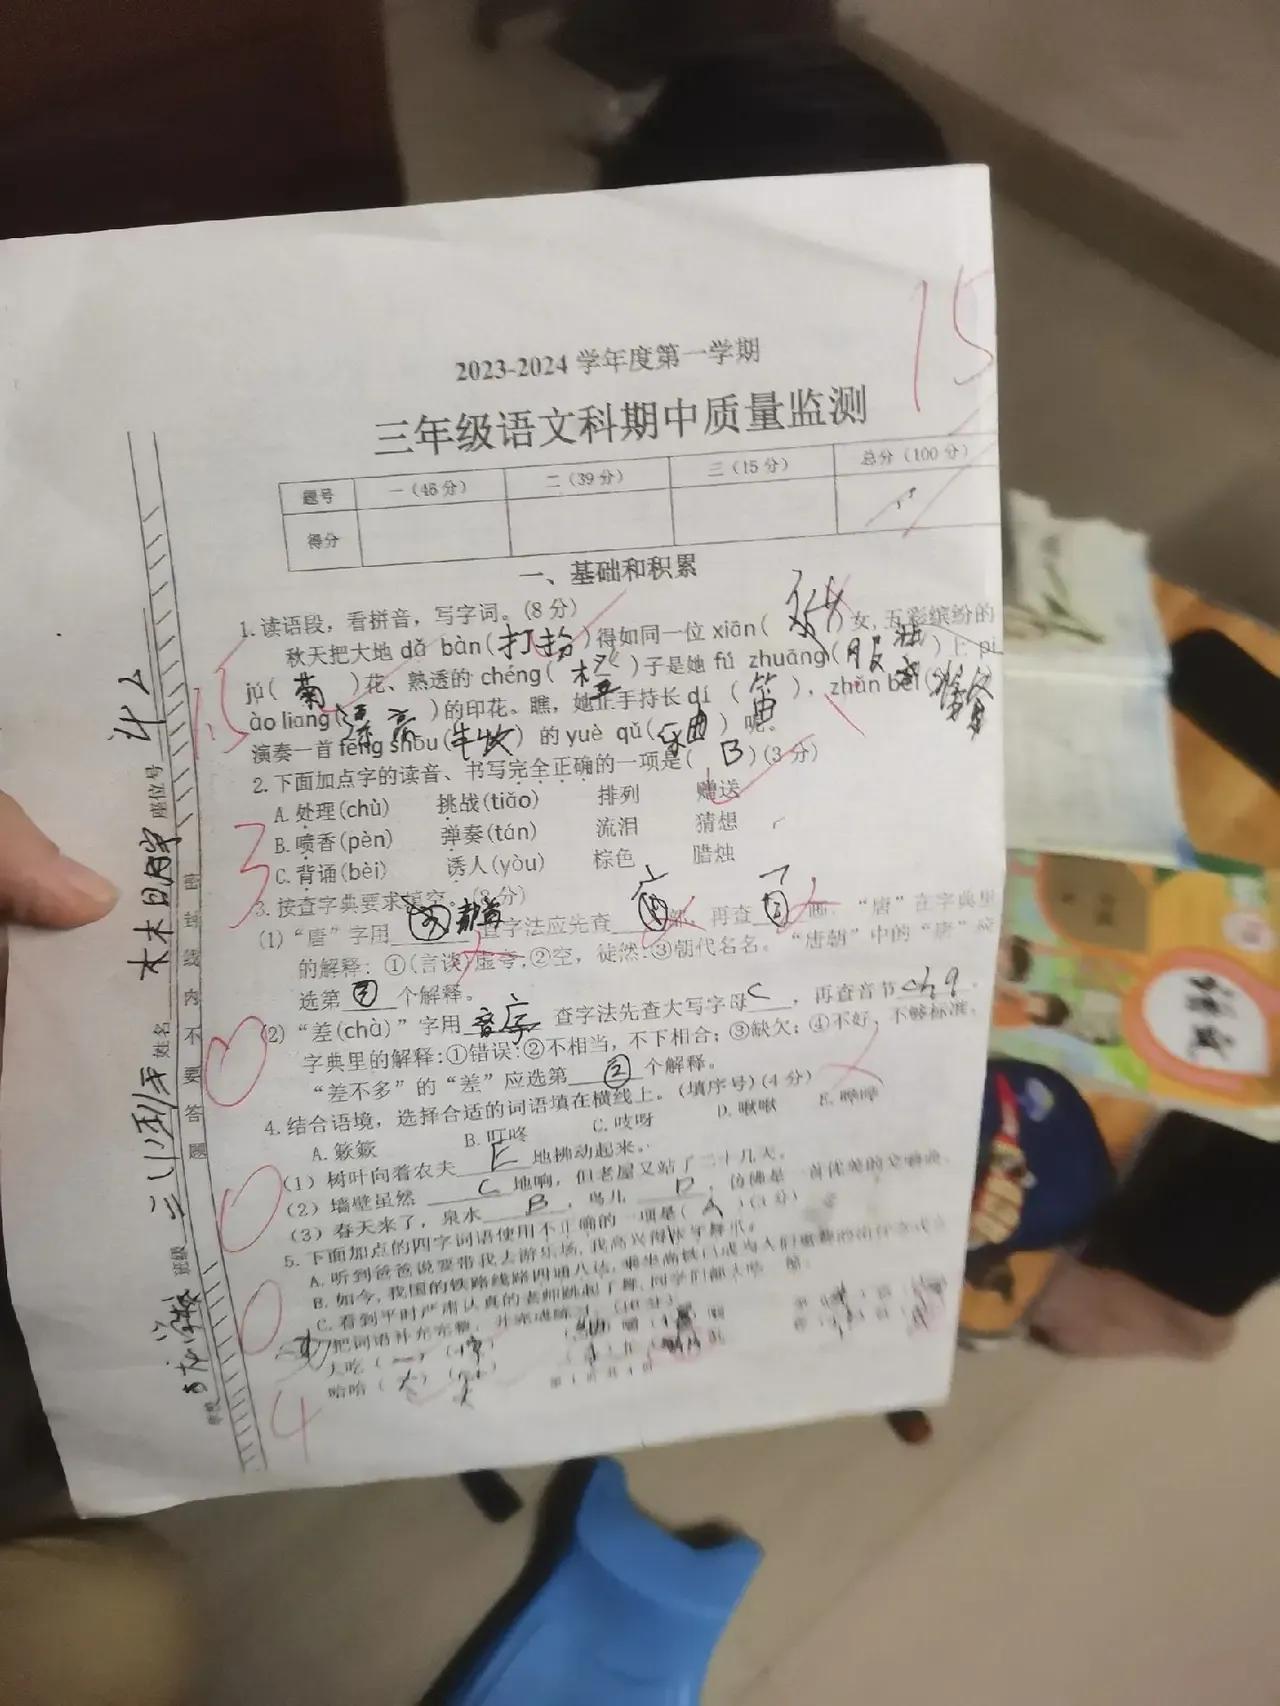 15
2023-2024 学年度第一学期
三年级语文科期中质量监测
题号 一(46分) 二(39分) 三(15分) 总分(100分)
得分
一、基础和积累
1.读语段，看拼音，写字词。(8分)
秋天把大地 dǎ bàn(打扮)得如同一位 xiān( )女,五彩缤纷的
jú(菊)花、熟透的 chéng(橙)子是她 fú zhuāng(服 )上 pi
ào liang(漂亮)的印花。瞧，她正手持长 dí (笛)，zhǔn bèi(准备)
演奏一首 fēng shōu(丰收) 的 yuè qǔ(乐曲) 呢。
2.下面加点字的读音、书写完全正确的一项是( B )(3分)
A.处理(chù) 挑战(tiǎo) 排列 赠送
B.喷香(pèn) 弹奏(tán) 流泪 猜想
C.背诵(bèi) 诱人(yòu) 棕色 腊烛
3.按查字典要求填空。(8分)
(1)“唐”字用 查字法应先查 部，再查 画。“唐”在字典里
的解释：①(言谈)虚夸;②空，徒然;③朝代名名。“唐朝”中的“唐”应
选第 ③ 个解释。
(2)“差(chà)”字用 音序 查字法先查大写字母 C ，再查音节 cha 。
字典里的解释:①错误;②不相当，不下相合；③缺欠；④不好，不够标准。
“差不多”的“差”应选第 ② 个解释。
4.结合语境，选择合适的词语填在横线上。(填序号)(4分)
A.簌簌 B.叮咚 C.吱呀 D.啾啾 E.哗哗
(1) 树叶向着农夫 E 地拂动起来。
(2) 墙壁虽然 C 地响，但老屋又站了二十几天。
(3) 春天来了，泉水 B ，鸟儿 D ，仿佛是一首优美的交响曲。
5.下面加点的四字词语使用不正确的一项是( A )(3分)
A.听到爸爸说要带我去游乐场,我高兴得张牙舞爪。
B.如今,我国的铁路线路四通八达,乘坐高铁已成为人们重要的出行方式
C.看到平时严肃认真的老师跳起了舞,同学们都大吃一惊。
把词语补充完整，并完成练习。(10分)
大吃(一)(惊)
哈哈(大)(笑)
第 1 页 共 4 页
1.5
3
0
0
0
4
学校
班级
姓名
座位号
密封线内不要答题